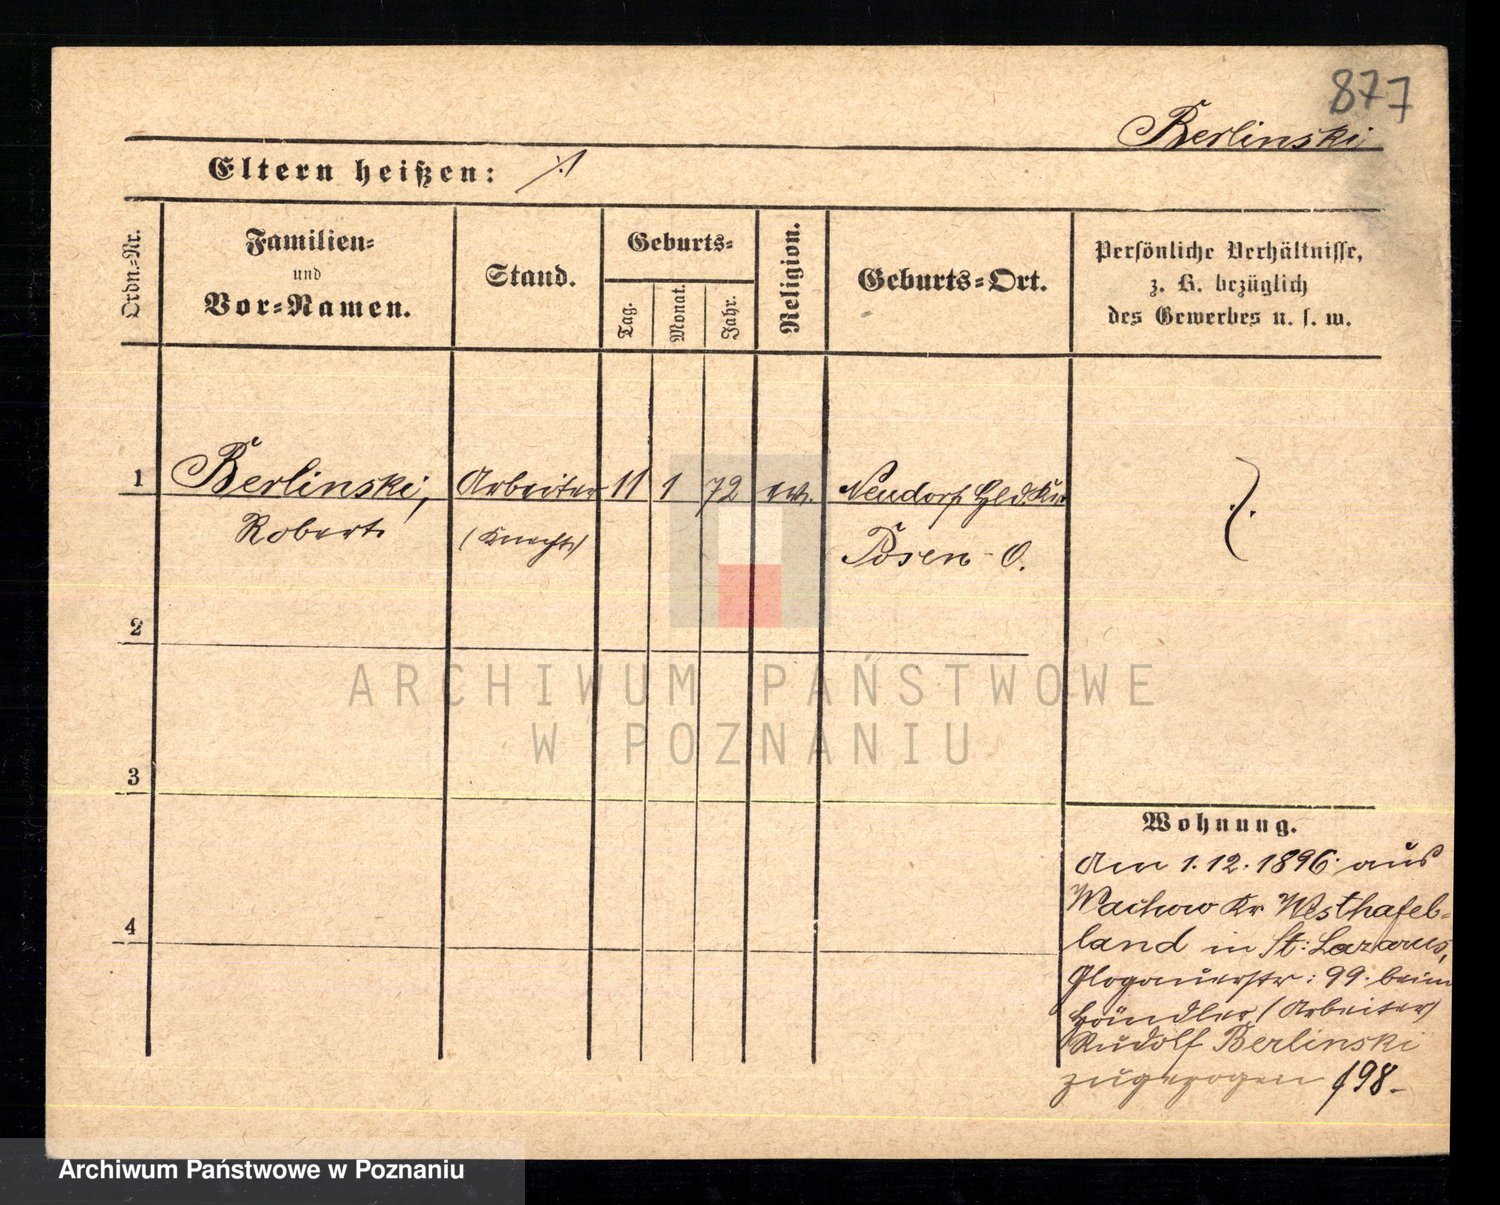 877
Berlinski
Eltern heißen: ·/·
Ordn.-Nr.
Familien-
und
Vor-Namen.
Stand.
Geburts-
Tag.
Monat.
Jahr.
Religion.
Geburts-Ort.
Persönliche Verhältnisse,
z. B. bezüglich
des Gewerbes u. s. w.
1 Berlinski, Arbeiter 11 1 72 ev. Neudorf Hld. Kr.
Robert (Knecht) Posen-O.
2
3
4
ARCHIWUM PAŃSTWOWE
W POZNANIU
Wohnung.
Am 1.12.1896 aus
Wachow Kr Westhafel-
land in St: Lazarus,
Glogauerstr: 99. beim
Händler (Arbeiter)
Rudolf Berlinski
zugezogen /98-
Archiwum Państwowe w Poznaniu